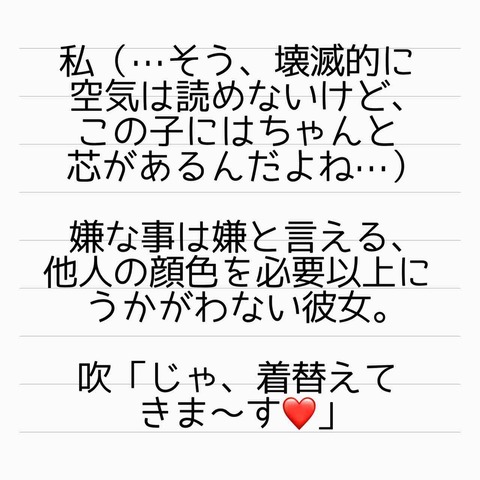 私（…そう、壊滅的に
空気は読めないけど、
この子にはちゃんと
芯があるんだよね…）
嫌な事は嫌と言える、
他人の顔色を必要以上に
うかがわない彼女。
吹「じゃ、着替えて
きま〜す❤️」